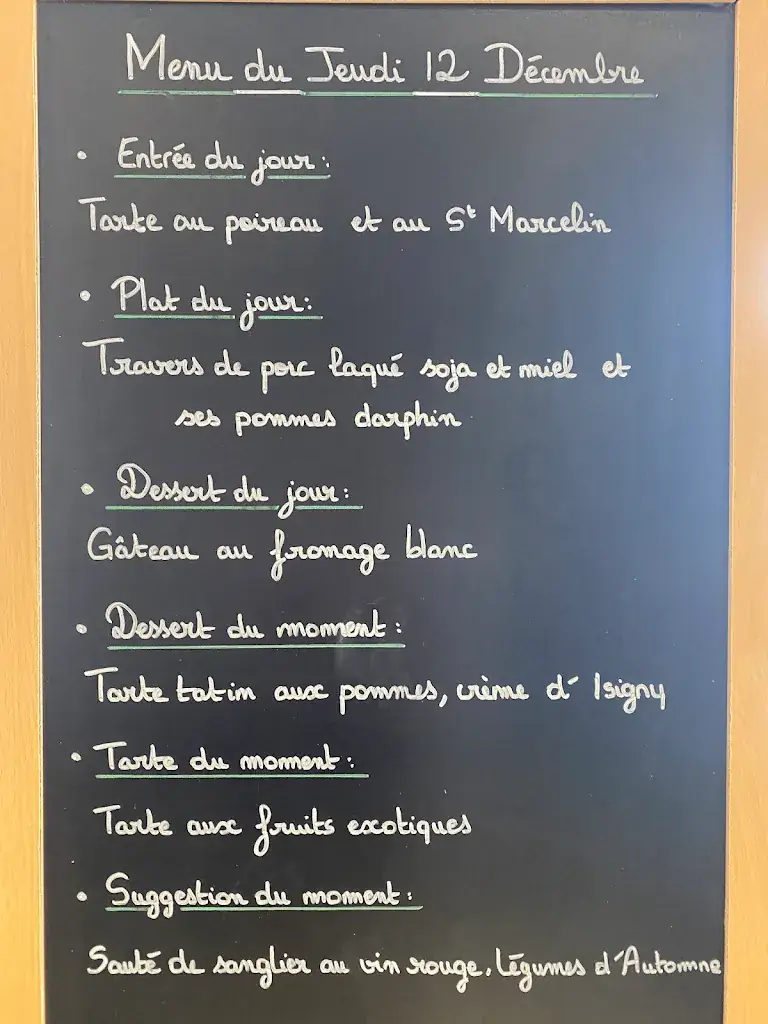 Menu du Jeudi 12 Décembre
• Entrée du jour :
Tarte au poireau et au St Marcelin
• Plat du jour :
Travers de porc laqué soja et miel et
ses pommes darphin
• Dessert du jour :
Gâteau au fromage blanc
• Dessert du moment :
Tarte tatin aux pommes, crème d'Isigny
• Tarte du moment :
Tarte aux fruits exotiques
• Suggestion du moment :
Sauté de sanglier au vin rouge, légumes d'Automne